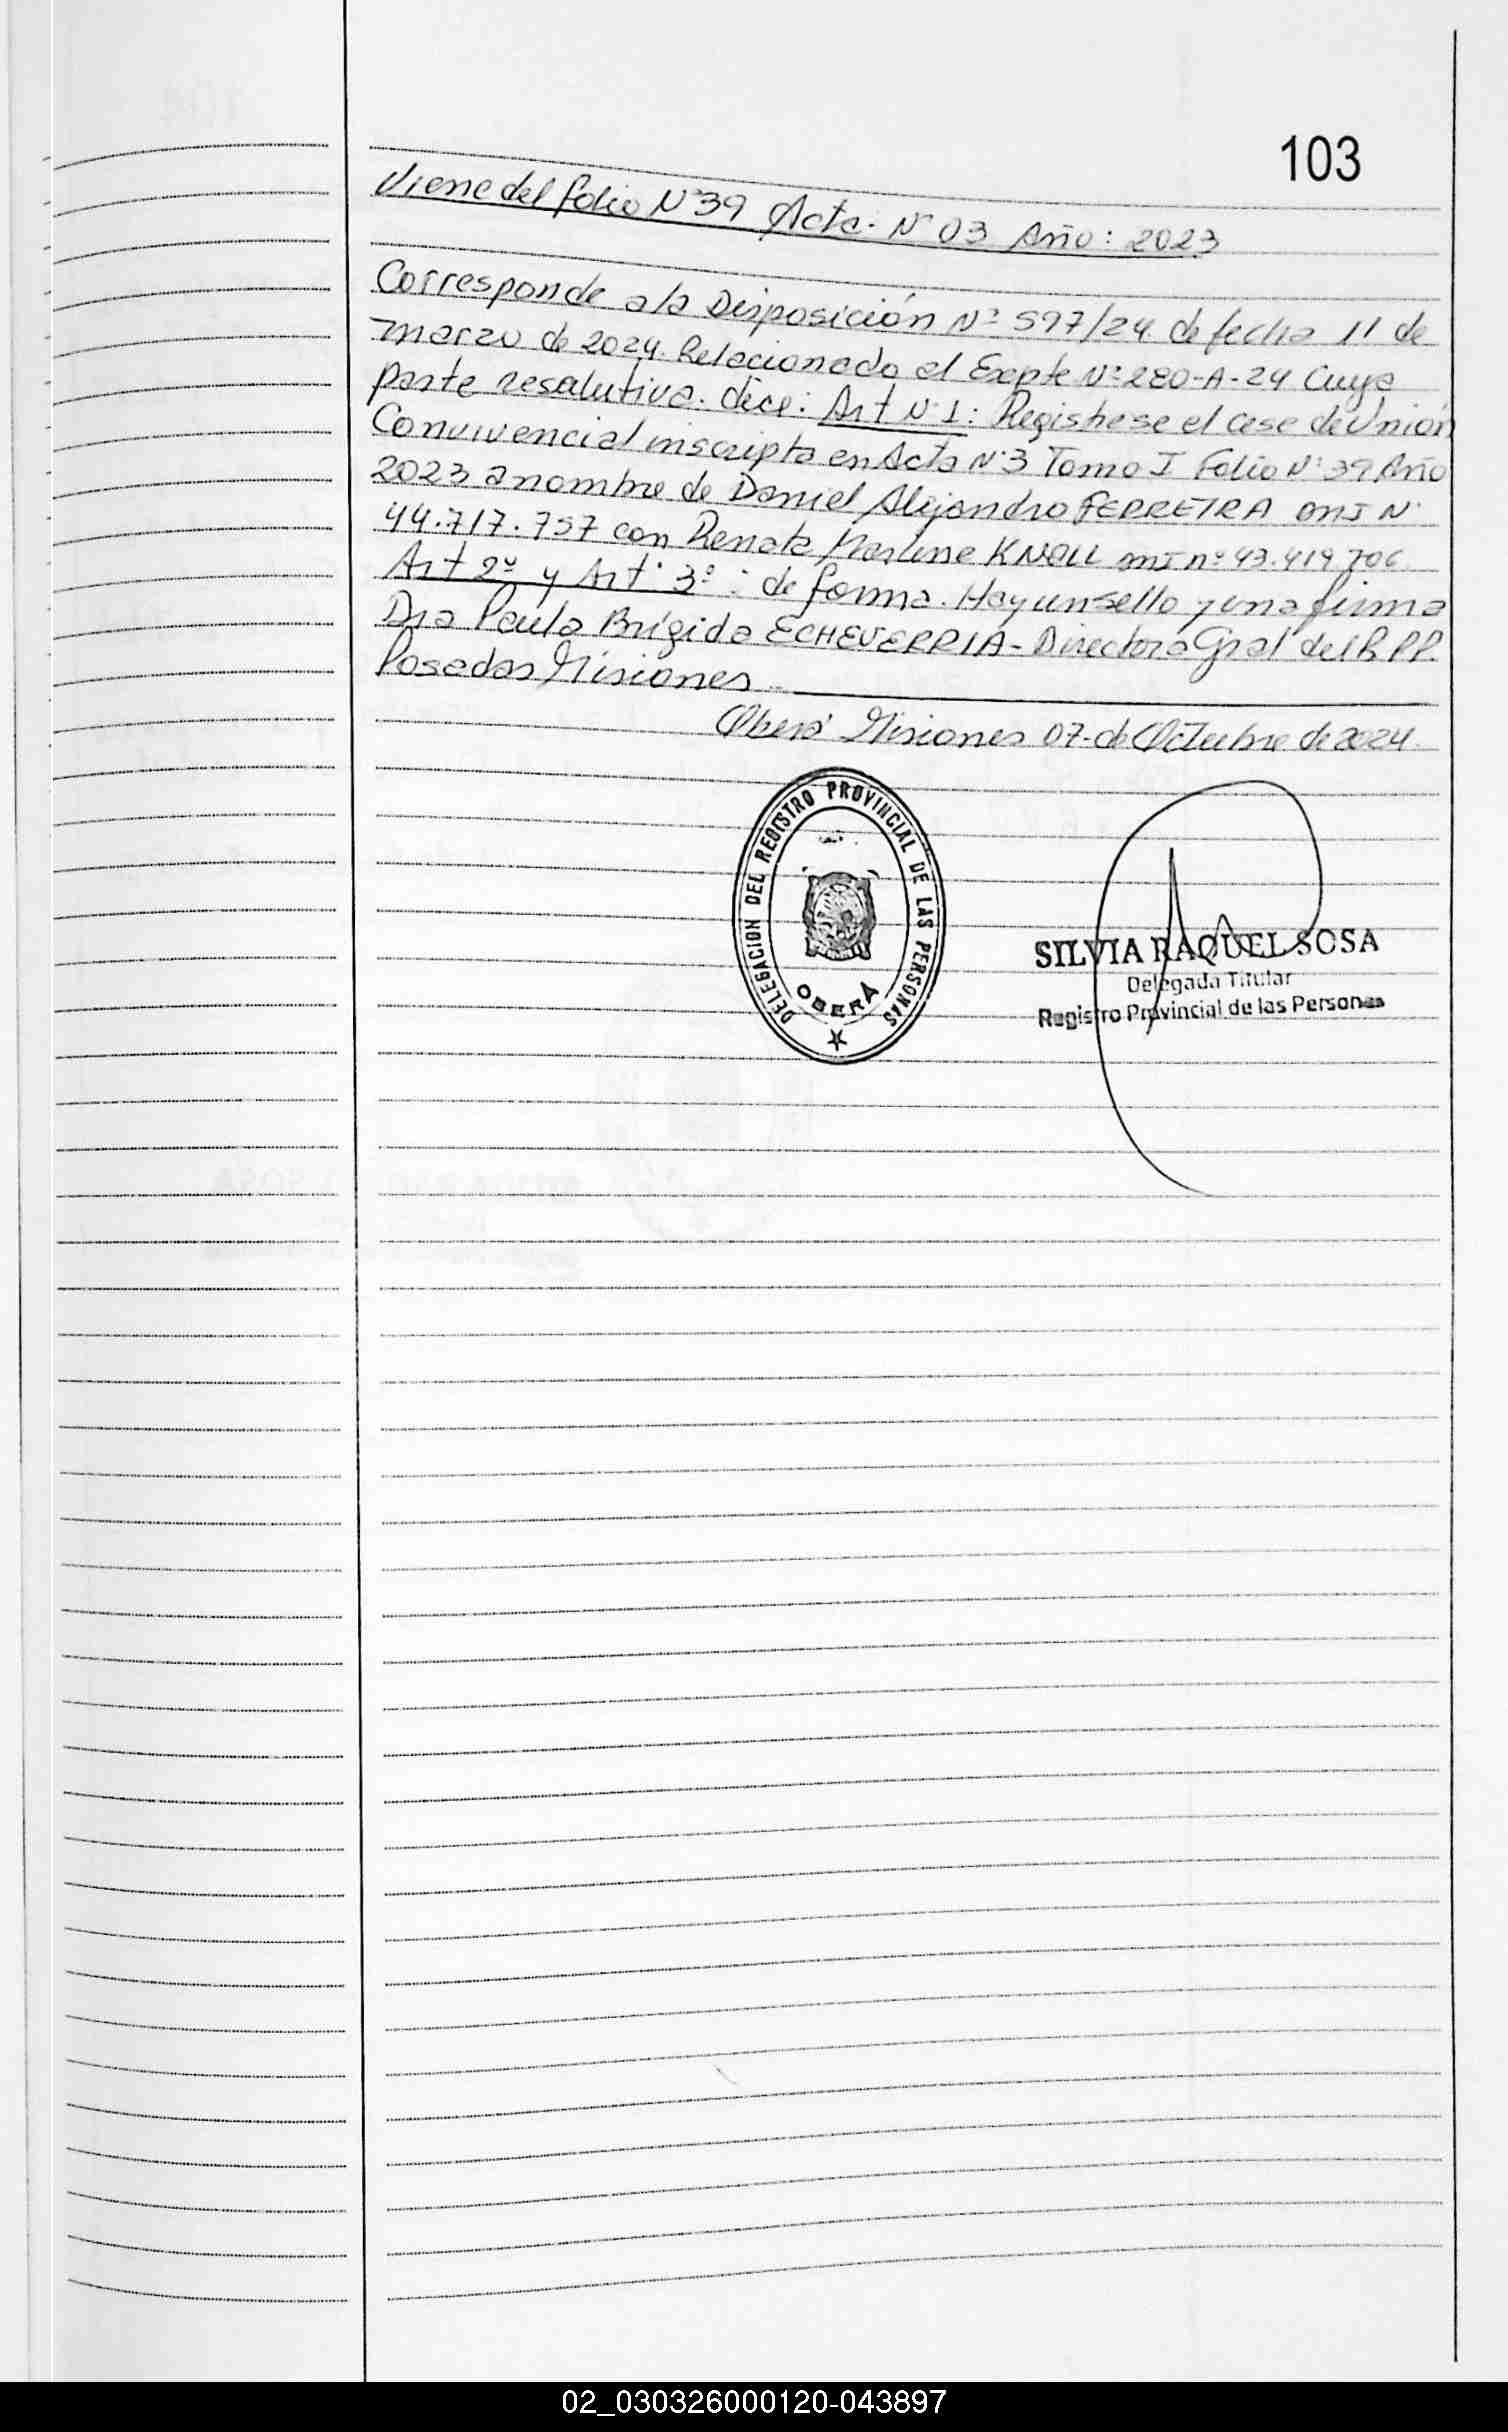 103
Viene del folio N°39 Acta: N° 03 Año: 2023
Corresponde a la Disposición N° 597/24 de fecha 11 de
marzo de 2024. Relacionado al Expte N° 280-A-24 Cuya
parte resolutiva. dice: Art N° 1: Registrese el cese de Unión
Convivencial inscripta en Acta N° 3 Tomo I Folio N° 39 Año
2023 a nombre de Daniel Alejandro FERREIRA DNI N°
44.717.757 con Renata Marlene KNOLL DNI n° 43.419.706
Art 2° y Art° 3°: de forma. Hay un sello y una firma
Dra Paula Brígida ECHEVERRIA - Directora Gral del R.P.P.
Posadas Misiones
Oberá Misiones 07 de Octubre de 2024.
DELEGACION DEL REGISTRO PROVINCIAL DE LAS PERSONAS
OBERÁ
SILVIA RAQUEL SOSA
Delegada Titular
Registro Provincial de las Personas
02_030326000120-043897